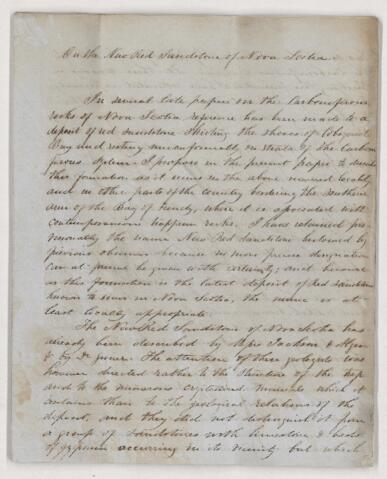 On the New Red Sandstone of Nova Scotia
In several late papers on the Carboniferous
rocks of Nova Scotia reference has been made to a
deposit of red sandstone skirting the shores of Cobequid
Bay and resting unconformably on strata of the Carboni
ferous System. I propose in the present paper to describe
this formation as it occurs in the above named locality
and in other parts of the country bordering the southern
arm of the Bay of Fundy, where it is associated with
contemporaneous trappean rocks. I have retained pro
visionally the name New Red Sandstone bestowed by
previous observers because no more precise designation
can at present be given with certainty; and because
as this formation is the latest deposit of red sandstone
known to occur in Nova Scotia, the name is at
least locally appropriate.
The New Red Sandstone of Nova Scotia has
already been described by Mprs Jackson & Alger
& by Dr Gesner. The attention of these geologists was
however directed rather to the structure of the trap
and to the numerous crystalized minerals which it
contains than to the geological relations of the
deposit, and they did not distinguish it from
a group of sandstones with limestone & beds
of gypsum occurring in its vicinity but which